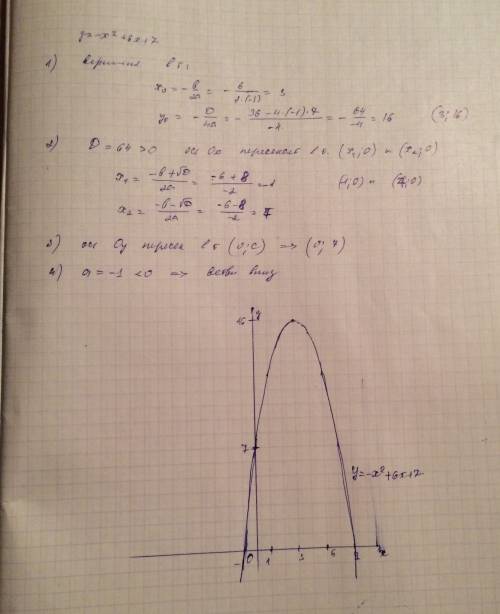 y=-x²+6x+7
1) Вершина в т.
x₀ = -b/2a = -6/(2·(-1)) = 3
y₀ = -D/4a = -(36-4·(-1)·7)/-4 = -64/-4 = 16 (3;16)
2) D=64>0 ось Ox пересекает в т. (x₁;0) и (x₂;0)
x₁ = (-b+√D)/2a = (-6+8)/-2 = -1 (-1;0) и (7;0)
x₂ = (-b-√D)/2a = (-6-8)/-2 = 7
3) ось Oy пересек в т (0;c) => (0;7)
4) a=-1<0 => ветви вниз
16 y
7
y=-x²+6x+7
-1 0 1 3 6 7 x